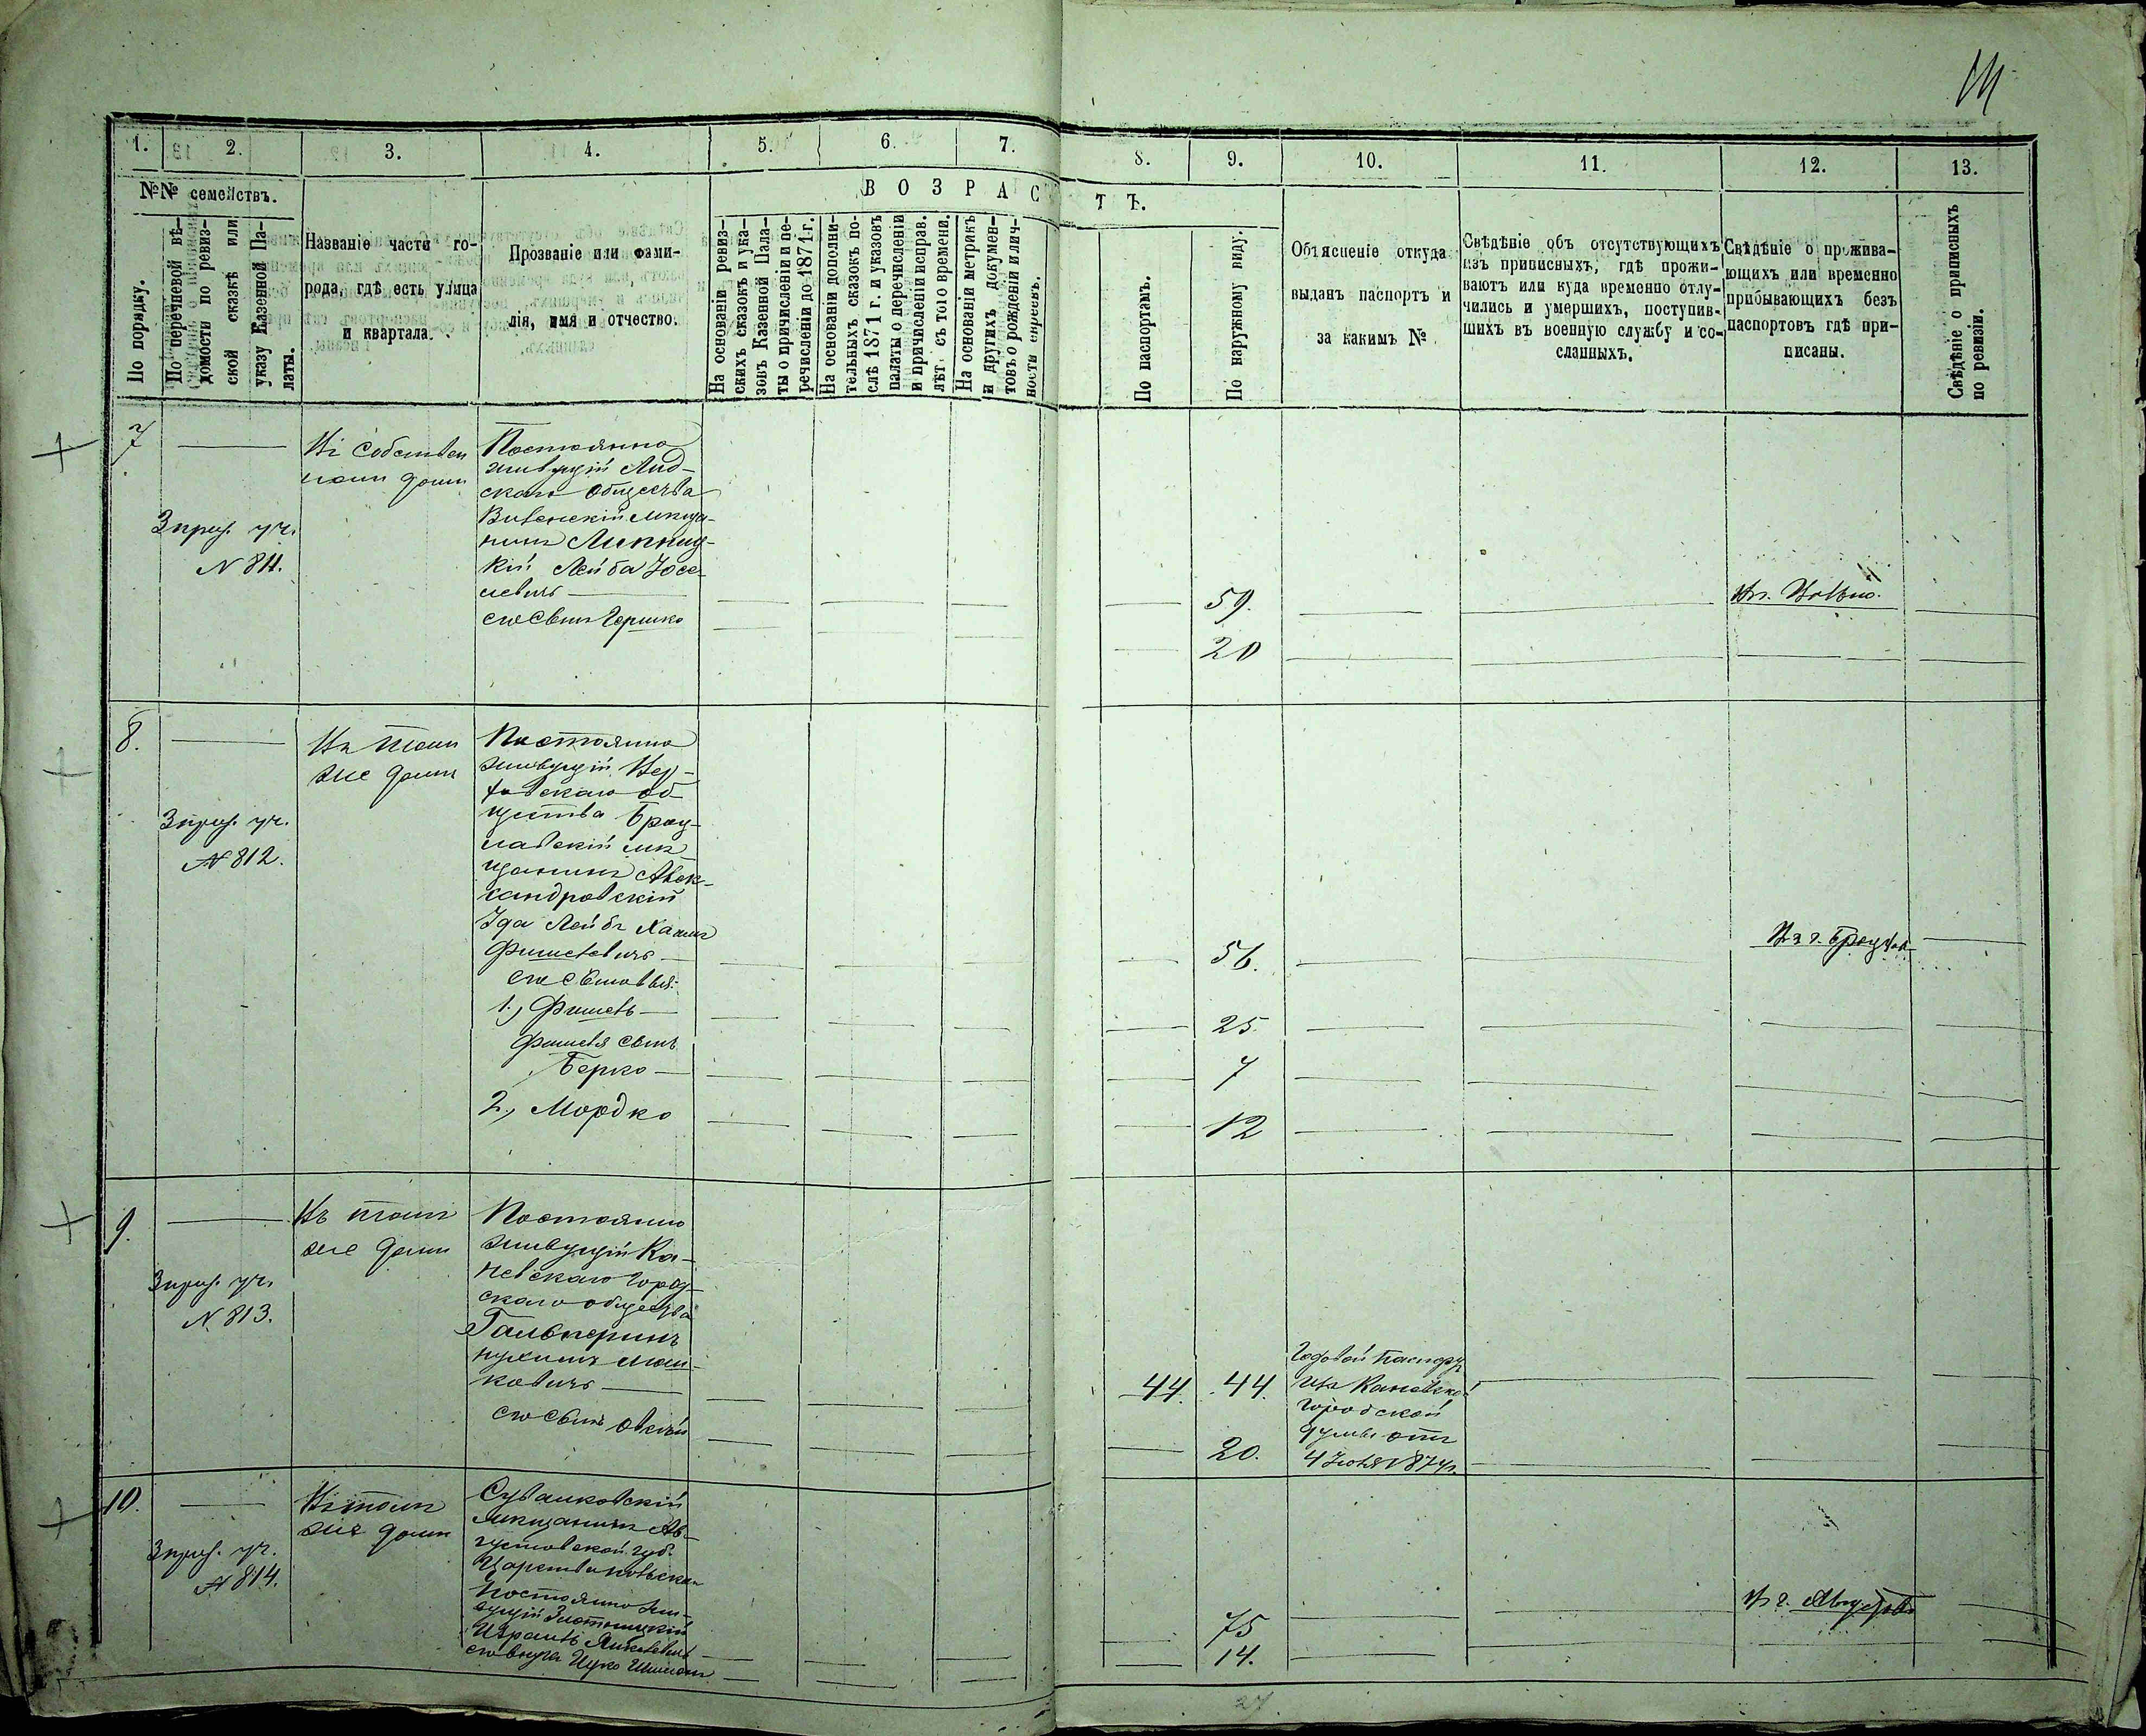 1. 2. 3. 4. 5. 6. 7. 8. 9. 10. 11. 12. 13.
№№ семействъ.
В О З Р А С Т Ъ.
По порядку.
По перечневой вѣ-
домости по ревиз-
ской сказкѣ или
указу Казенной Па-
латы.
Названіе части го-
рода, гдѣ есть улица
и квартала.
Прозваніе или фами-
лія, имя и отчество.
На основаніи ревиз-
скихъ сказокъ и ука-
зовъ Казенной Пала-
ты о причисленіи и пе-
речисленіи до 1871 г.
На основаніи дополни-
тельныхъ сказокъ по-
слѣ 1871 г. и указовъ
палаты о перечисленіи
и причисленіи исправ.
лѣт. съ того времени.
На основаніи метрикъ
и другихъ докумен-
товъ о рожденіи и лич-
ности евреевъ.
По паспортамъ.
По наружному виду.
Объясненіе откуда
выданъ паспортъ и
за какимъ №
Свѣдѣніе объ отсутствующихъ
изъ приписныхъ, гдѣ прожи-
ваютъ или куда временно отлу-
чились и умершихъ, поступив-
шихъ въ военную службу и со-
сланныхъ.
Свѣдѣніе о прожива-
ющихъ или временно
прибывающихъ безъ
паспортовъ гдѣ при-
писаны.
Свѣдѣніе о приписныхъ
по ревизіи.
7
Въ собствен
номъ домѣ
3 приз. уч.
N 811.
Постоянно
живущій Лид-
скаго общества
Виленскій мѣща-
нинъ Липниц-
кій Лейба Іосе-
левичъ
59.
его сынъ Гершко
20
8.
Въ томъ
же домѣ
3 приз. уч.
N 812.
Постоянно
живущій
об-
щества Брац-
лавскій мѣ
щанинъ Алек-
сандровскій
Лейба Хаимъ
Фишелевичъ
56.
Из г.
его сыновья:
1., Фишель
25.
Фишеля сынъ
Берко
7
2., Мордко
12
9.
Въ томъ
же домѣ
3 приз. уч.
N 813.
Постоянно
живущій Ка-
невскаго город-
скаго общества
Гальперинъ
Нухимъ Мош-
ковичъ
44. 44.
его сынъ
20.
Годовой паспортъ
изъ Каневской
городской
думы отъ
4 1874 г.
10.
Въ томъ
же домѣ
3 приз. уч.
N 814.
Сувалковскій
мѣщанинъ Ав-
густовской губ.
Царства Польскаго
постоянно жи-
вущій
Израиль
75
его внукъ Ицко
14.